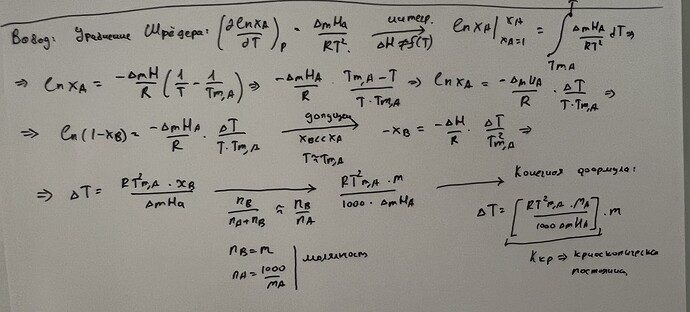 Вывод: Уравнение Шрёдера: (∂lnxA/∂T)p = ΔmHa/RT² → интегр. ΔH≠f(T) lnxA |xA xA=1 = ∫T Tm,A ΔmHA/RT² dT ⇒
⇒ lnxA = -ΔmH/R (1/T - 1/Tm,A) ⇒ -ΔmHA/R · Tm,A-T/T·Tm,A ⇒ lnxA = -ΔmHA/R · ΔT/T·Tm,A ⇒
⇒ ln(1-xB) = -ΔmHA/R · ΔT/T·Tm,A → допущен xB<<xA T≈Tm,A -xB = -ΔH/R · ΔT/T²m,A ⇒
⇒ ΔT = RT²m,A · xB/ΔmHa → nB/nA+nB ≈ nB/nA RT²m,A · m/1000 · ΔmHA → Конечная формула:
ΔT = [RT²m,A · MA/1000 ΔmHA] · m
nB = m
nA = 1000/MA | моляльность
Kкр ⇒ криоскопическа
постоянна